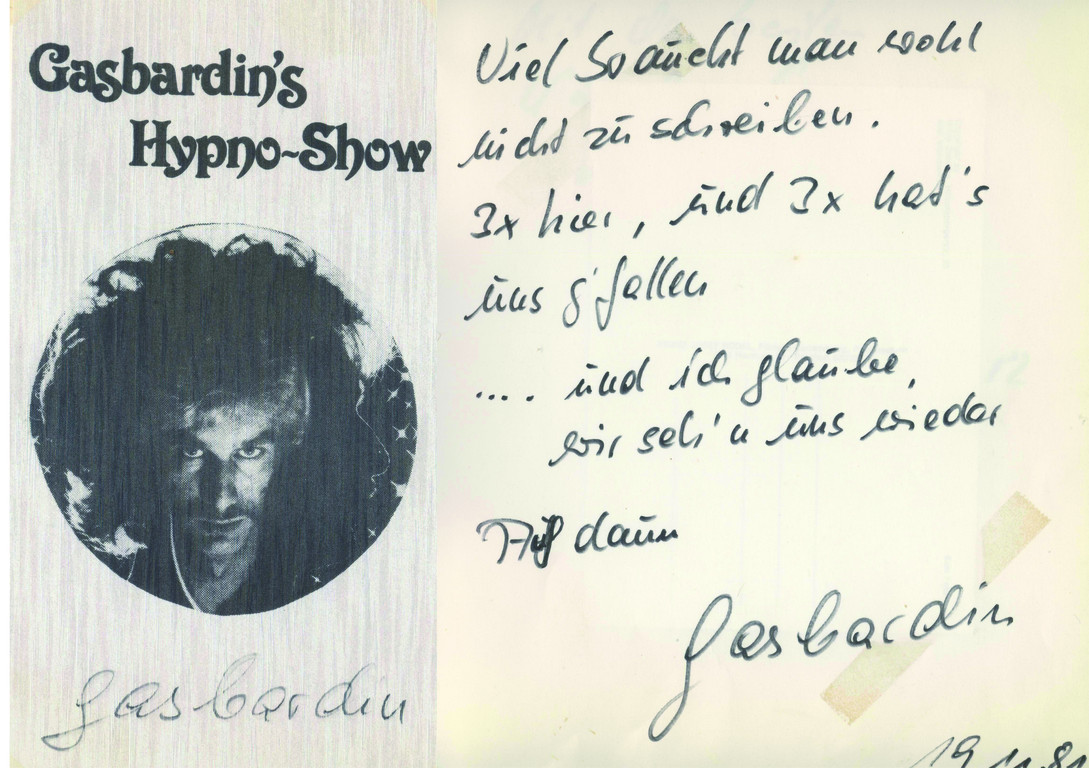 Gasbardin's
Hypno-Show
gasbardin
Viel braucht man wohl
nicht zu schreiben.
3x hier, und 3x hat's
uns g'fallen
.... und ich glaube,
wir seh'n uns wieder
Auf dann
gasbardin
19.